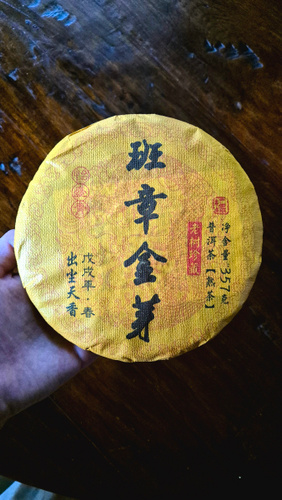 班章金芽
老树珍藏
净含量:357克
普洱茶【熟茶】
戊戌年·春
出尘天香